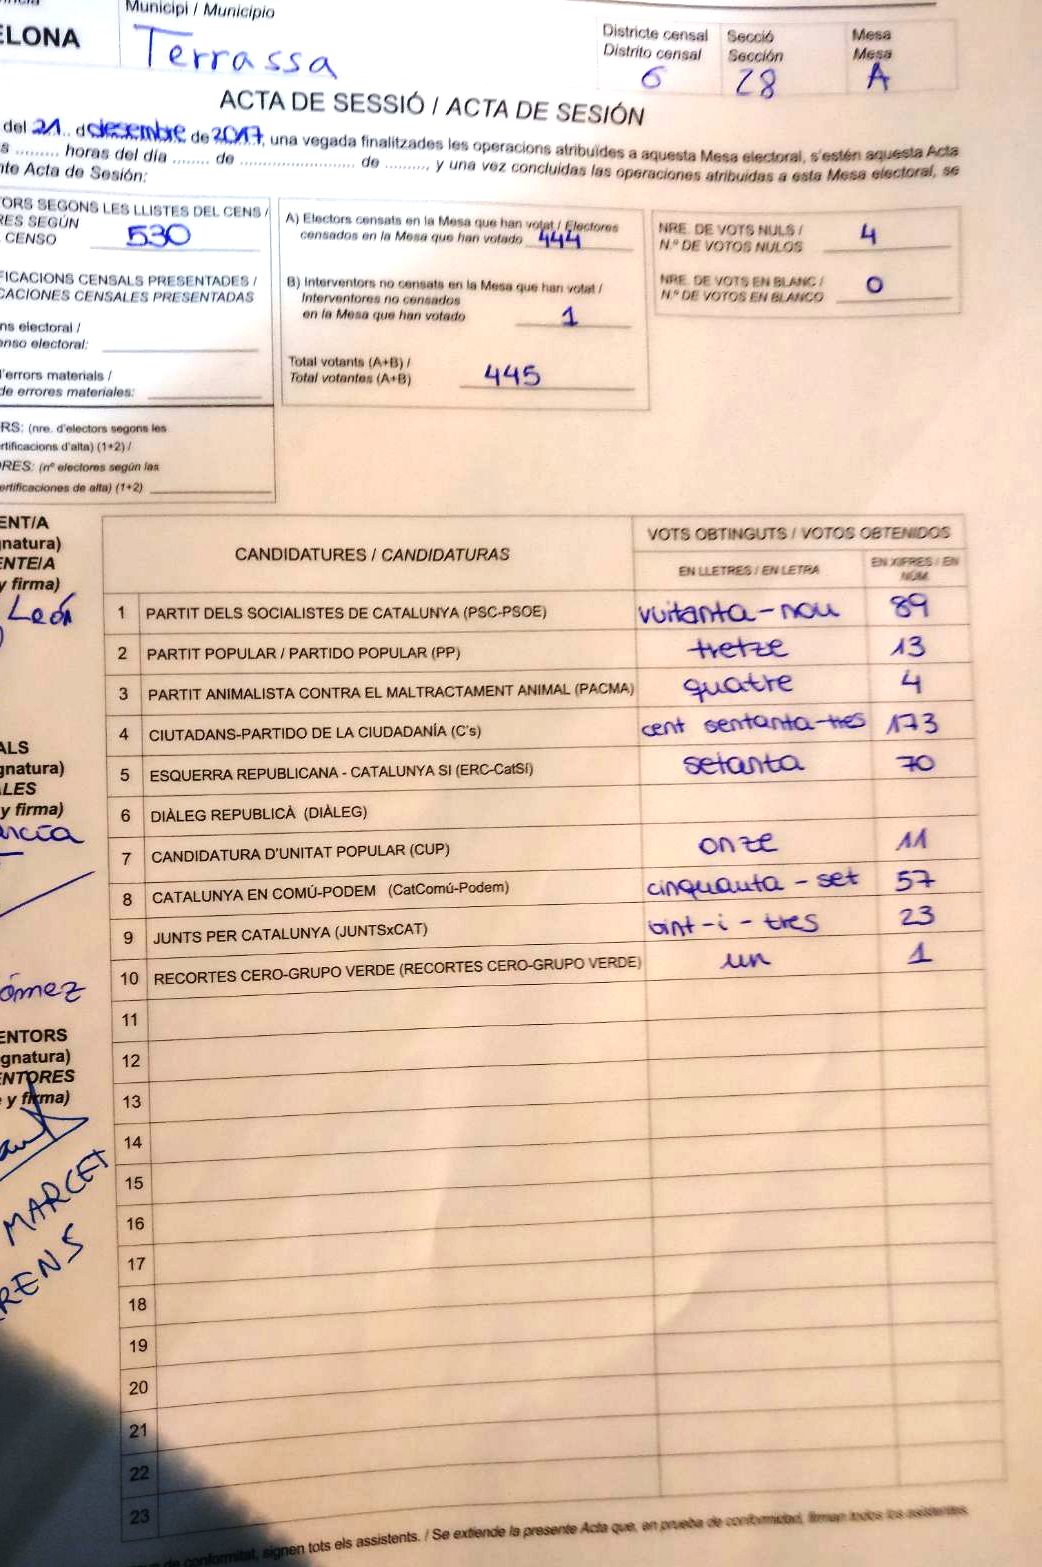 Municipi / Municipio
ELONA
Terrassa
Districte censal Secció Mesa
Distrito censal Sección Mesa
6 28 A
ACTA DE SESSIÓ / ACTA DE SESIÓN
del 21 d desembre de 2017, una vegada finalitzades les operacions atribuïdes a aquesta Mesa electoral, s'estén aquesta Acta
s ......... horas del día ........ de ......................... de ........., y una vez concluidas las operaciones atribuidas a esta Mesa electoral, se
nte Acta de Sesión:
TORS SEGONS LES LLISTES DEL CENS /
RES SEGÚN
CENSO 530
FICACIONS CENSALS PRESENTADES /
CACIONES CENSALES PRESENTADAS
ns electoral /
enso electoral:
d'errors materials /
de errores materiales:
RS: (nre. d'electors segons les
rtificacions d'alta) (1+2) /
ORES: (nº electores según las
ertificaciones de alta) (1+2)
A) Electors censats en la Mesa que han votat / Electores
censados en la Mesa que han votado 444
B) Interventors no censats en la Mesa que han votat /
Interventores no censados
en la Mesa que han votado 1
Total votants (A+B) /
Total votantes (A+B) 445
NRE. DE VOTS NULS / 4
N.º DE VOTOS NULOS
NRE. DE VOTS EN BLANC / 0
N.º DE VOTOS EN BLANCO
ENT/A
gnatura)
ENTE/A
y firma)
León
ALS
gnatura)
LES
y firma)
arcía
ómez
ENTORS
gnatura)
ENTORES
y firma)
MARCET
RRENS
CANDIDATURES / CANDIDATURAS VOTS OBTINGUTS / VOTOS OBTENIDOS
EN LLETRES / EN LETRA EN XIFRES / EN
NÚM.
1 PARTIT DELS SOCIALISTES DE CATALUNYA (PSC-PSOE) vuitanta-nou 89
2 PARTIT POPULAR / PARTIDO POPULAR (PP) tretze 13
3 PARTIT ANIMALISTA CONTRA EL MALTRACTAMENT ANIMAL (PACMA) quatre 4
4 CIUTADANS-PARTIDO DE LA CIUDADANÍA (C's) cent sentanta-tres 173
5 ESQUERRA REPUBLICANA - CATALUNYA SI (ERC-CatSí) setanta 70
6 DIÀLEG REPUBLICÀ (DIÀLEG)
7 CANDIDATURA D'UNITAT POPULAR (CUP) onze 11
8 CATALUNYA EN COMÚ-PODEM (CatComú-Podem) cinquanta-set 57
9 JUNTS PER CATALUNYA (JUNTSxCAT) bint-i-tres 23
10 RECORTES CERO-GRUPO VERDE (RECORTES CERO-GRUPO VERDE) un 1
11
12
13
14
15
16
17
18
19
20
21
22
23
de conformitat, signen tots els assistents. / Se extiende la presente Acta que, en prueba de conformidad, firman todos los asistentes.